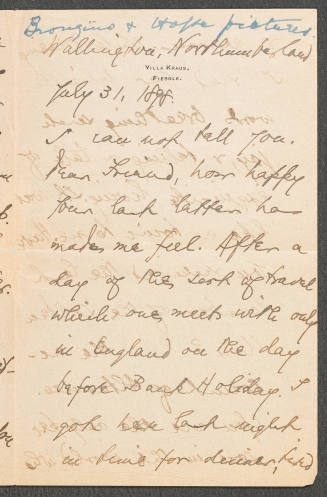 Bronzino & Hoppe pictures.
Wallington, Northumberland
VILLA KRAUS,
FIESOLE.
July 31, 1898.
I can not tell you,
Dear Friend, how happy
your last letter has
made me feel. After a
day of the sort of travel
which one meets with only
in England on the day
before Bank Holiday, I
got here last night
in time for dinner, tired